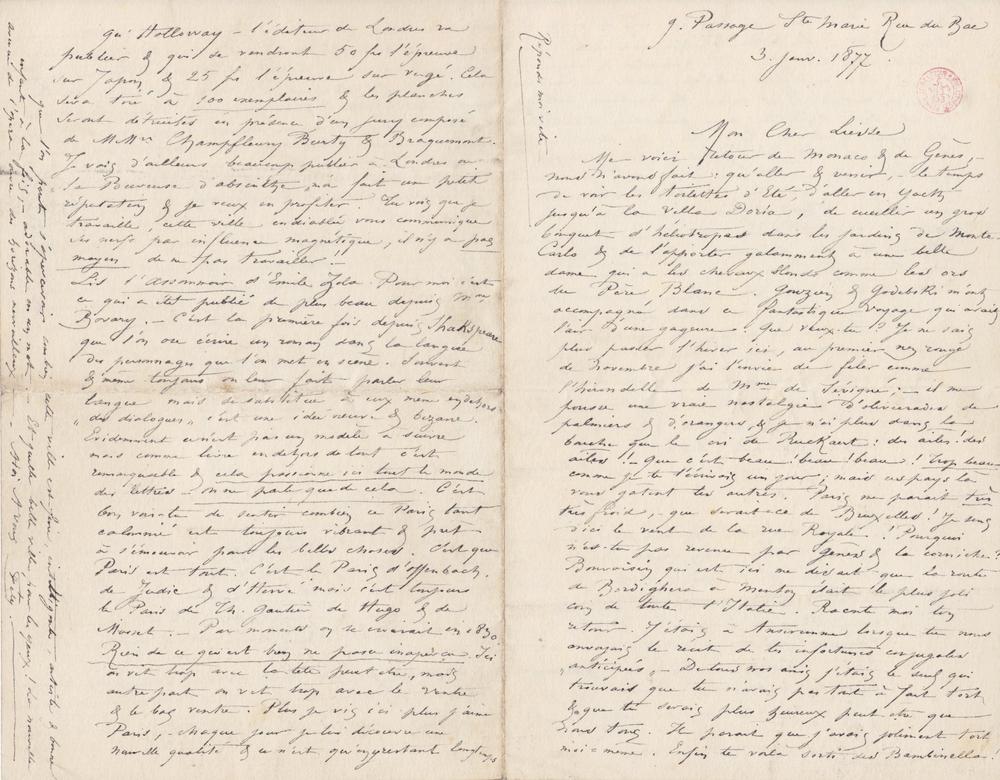 9. Passage Ste Marie Rue du Bac
3. Janv. 1877.
Mon Cher Liesse
Me voici retour de Monaco & de Gênes, –
nous n'avons fait : qu'aller & venir, – le temps
de voir les toilettes d'Eté, d'aller en Yacht
jusqu'à la villa Doria, de cueillir un gros
bouquet d'héliotropes dans les jardins de Monte-
Carlo & de l'apporter galamment à une belle
dame qui a les cheveux blonds comme les ors
du Père Blanc. Gouzien & Godebski m'ont
accompagné dans ce fantastique voyage qui avait
l'air d'une gageure. Que veux-tu ? Je ne sais
plus passer l'hiver ici, au premier nez rouge
de novembre j'ai l'envie de filer comme
l'hirondelle de Mme de Sévigné ; – il me
pousse une vraie nostalgie d'oliveraies de
palmiers & d'orangers, & je n'ai plus dans la
bouche que le cri de Ruckaert : des ailes ! des
ailes ! – Que c'est beau ! beau ! beau ! Trop beau
comme je te l'écrivais un jour ; mais ces pays là
vous gatent les autres. Paris me parait très
très froid, – que serait-ce de Bruxelles ! Je sens
d'ici le vent de la rue Royale ! Pourquoi
n'es-tu pas revenu par Gênes & la corniche ?
Bonvoisin qui est ici me disait que la route
de Bordighera à Menton était le plus joli
coin de toute l'Italie. Raconte moi ton
retour. J'étais à Anseremme lorsque tu nous
envoyais le récit de tes infortunes conjugales
"anticipées", – De tous nos amis j'étais le seul qui
trouvais que tu n'avais pas tout à fait tort
& que tu serais plus heureux peut être que
nous tous. Il parait que j'avais joliment tort
moi-même. Enfin te voilà sorti des Bambinella !
Réponds moi vite
qu'Holloway – l'éditeur de Londres va
publier & qui se vendront 50 frs l'épreuve
sur Japon, & 25 frs l'épreuve sur vergé. Cela
sera tiré à 100 exemplaires & les planches
seront détruites en présence d'un jury composé
de M.Mrs Champfleury Burty & Bracquemont.
Je vais d'ailleurs beaucoup publier à Londres où
la Buveuse d'absinthe, m'a fait un petit
réputation & je veux en profiter. Tu vois que je
travaille, cette ville endiablée vous communique
ses nerfs par influence magnétique, il n'y a pas
moyen de ne pas travailler !!
Lis l'Assommoir d'Emile Zola. Pour moi c'est
ce qui a été publié de plus beau depuis Mme
Bovary. – C'est la première fois depuis Shakspeare
que l'on ose écrire un roman dans la langue
des personnages que l'on met en scène. Souvent
& même toujours on leur fait parler leur
langue mais se substituer à eux même en dehors
"des dialogues", c'est une idée neuve & bizarre.
Evidemment ce n'est pas un modèle à suivre
mais comme livre en dehors de tout c'est
remarquable & cela passionne ici tout le monde
des lettres – on ne parle que de cela. C'est
bon vois-tu de sentir combien ce Paris tant
calomnié est toujours vibrant & prêt
à s'émouvoir pour les belles choses. C'est que
Paris est tout. C'est le Paris d'Offenbach,
de Judic & d'Hervé mais c'est toujours
le Paris de Th. Gautier de Hugo & de
Musset. – Par moments on se croirait en 1830
Rien de ce qui est bien ne passe inaperçu. Ici
on vit trop avec la tête peut être, mais
autre part on vit trop avec le ventre
& le bas ventre. Plus je vis ici plus j'aime
Paris, – chaque jour je lui découvre une
nouvelle qualité & ce n'est qu'en y restant longtemps
que l'on peut s'apercevoir combien cette ville est fine, intelligente, artiste & bonne
enfant à la fois, – adorable en un mot. – Et quelle belle ville pour les yeux ! La nouvelle
avenue de l'opéra ouvre des horizons merveilleux. – A toi A vous Fély.